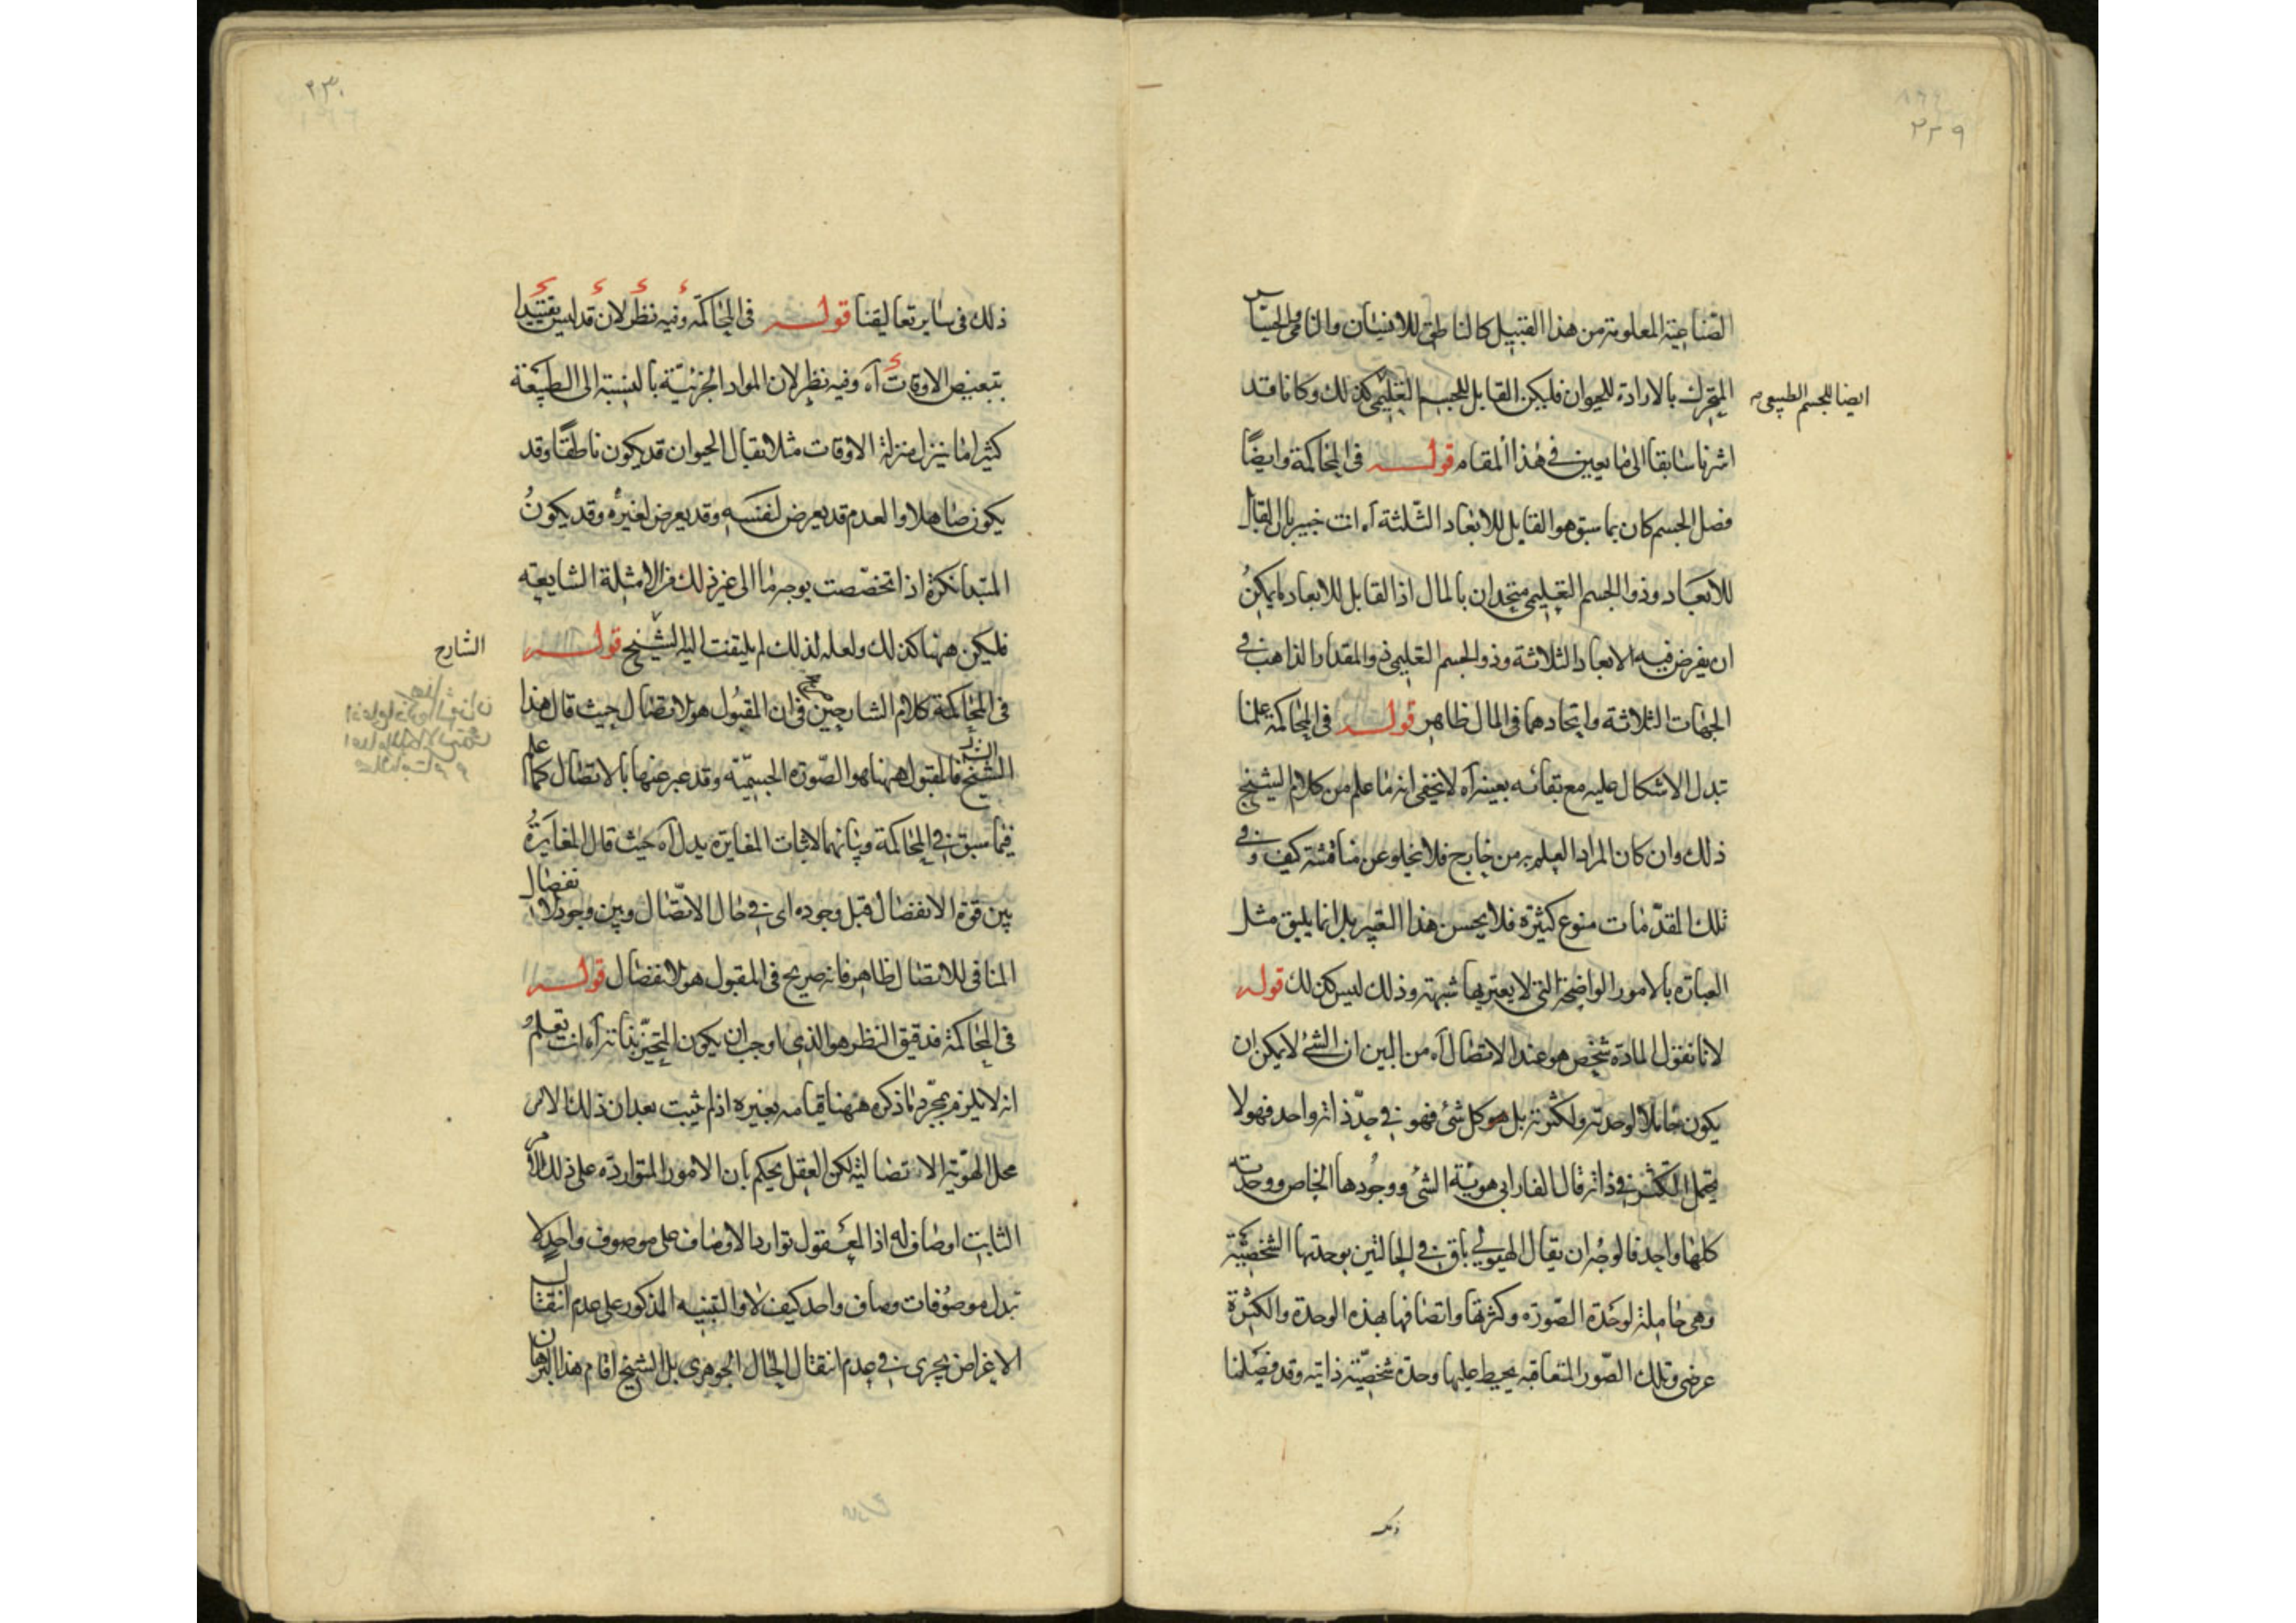 ٢٢٩
الصناعية المعلومة من هذا القبيل كالناطق للانسان والنامى والحساس
المتحرك بالارادة للحيوان فليكن القابل للجسم التعليمى كذلك وكانا قد
ايضا للجسم الطبيعى
اشرنا سابقا الى ما يعين فى هذا المقام قوله فى المحاكمة وايضًا
فصل الجسم كان بما سبق هو القابل للابعاد الثلثة آه انت خبير بان القابل
للابعاد وذو الجسم التعليمى متحدان بالمال اذ القابل للابعاد ما يمكن
ان يفرض فيه الابعاد الثلاثة وذو الجسم التعليمى ذو المقدار الذاهب فى
الجهات الثلاثة واتحادهما فى المال ظاهر قوله فى المحاكمة علمنا
تبدل الاشكال عليه مع بقائه بعينه آه لا يخفى انه ما علم من كلام الشيخ
ذلك وان كان المراد العلم به من خارج فلا يخلو عن مناقشة كيف وفى
تلك المقدّمات منوع كثيرة فلا يحسن هذا التعبير بل انما يليق مثل
العبارة بالامور الواضحة التى لا يعتريها شبهة وذلك ليس كذلك قوله
لانا نقول المادة شخص هو عند الاتصال آه من البين ان الشئ لا يمكن ان
يكون حاملا لوحدته ولكثرته بل هو كل شئ فهو فى حدّ ذاته واحد فهو لا
يحتمل التكثر فى ذاته قال الفارابى هوية الشئ ووجودها الخاص ووحدته
كلها واحد فالوجه ان يقال الهيولى باق فى الحالتين بوحدتها الشخصية
وهى حاملة لوحدة الصّورة وكثرتها واتصافها بهذه الوحدة والكثرة
عرضى وتلك الصّور المتعاقبة يحيط عليها وحدة شخصيّة ذاتية وقد فصّلنا
ذلك
٢٣٠
ذلك فى ساير تعاليقنا قوله فى المحاكمة وفيه نظر لان قد ليس تقييدا
بتبعيض الاوقات آه وفيه نظر لان المواد الجزئيّة بالنسبة الى الطبيعة
كثيرا ما ينزل منزلة الاوقات مثلا يقال الحيوان قد يكون ناطقًا وقد
يكون صاهلا والعدم قد يعرض لنفسه وقد يعرض لغيره وقد يكون
المبتدا نكرة اذا تخصّصت بوجه ما الى غير ذلك من الامثلة الشايعة
فليكن ههنا كذلك ولعله لذلك لم يلتفت اليه الشيخ قوله
الشارح
فى المحاكمة كلام الشارحين فى ان المقبول هو الاتصال حيث قال هذا
الشيخ فالمقبول ههنا هو الصّورة الجسميّة وقد عبر عنها بالاتصال كما علم
فيما سبق فى المحاكمة وبيانهما لاثبات المغايرة يدل آه حيث قال المغايرة
بين قوة الانفصال قبل وجوده اى فى حال الاتّصال وبين وجود الانفصال
المنافى للاتصال ظاهر فانه صريح فى المقبول هو الانفصال قوله
فى المحاكمة فدقيق النظر هو الذى اوجب ان يكون المتحيّز بذاته آه انت تعلم
انه لا يلزم بمجرّد ما ذكره ههنا قيامه بغيره اذ لم يثبت بعد ان ذلك الامر
محل الهوّية الاتصالية لكن العقل يحكم بان الامور المتواردة على ذلك الامر
الثابت اوصاف له اذ المعقول توارد الاوصاف على موصوف واحد لا
تبدل موصوفات وصاف واحد كيف لا والتنبيه المذكور على عدم انتقال
الاعراض يجرى فى عدم انتقال الحال الجوهرى بل الشيخ اقام هذا البرهان